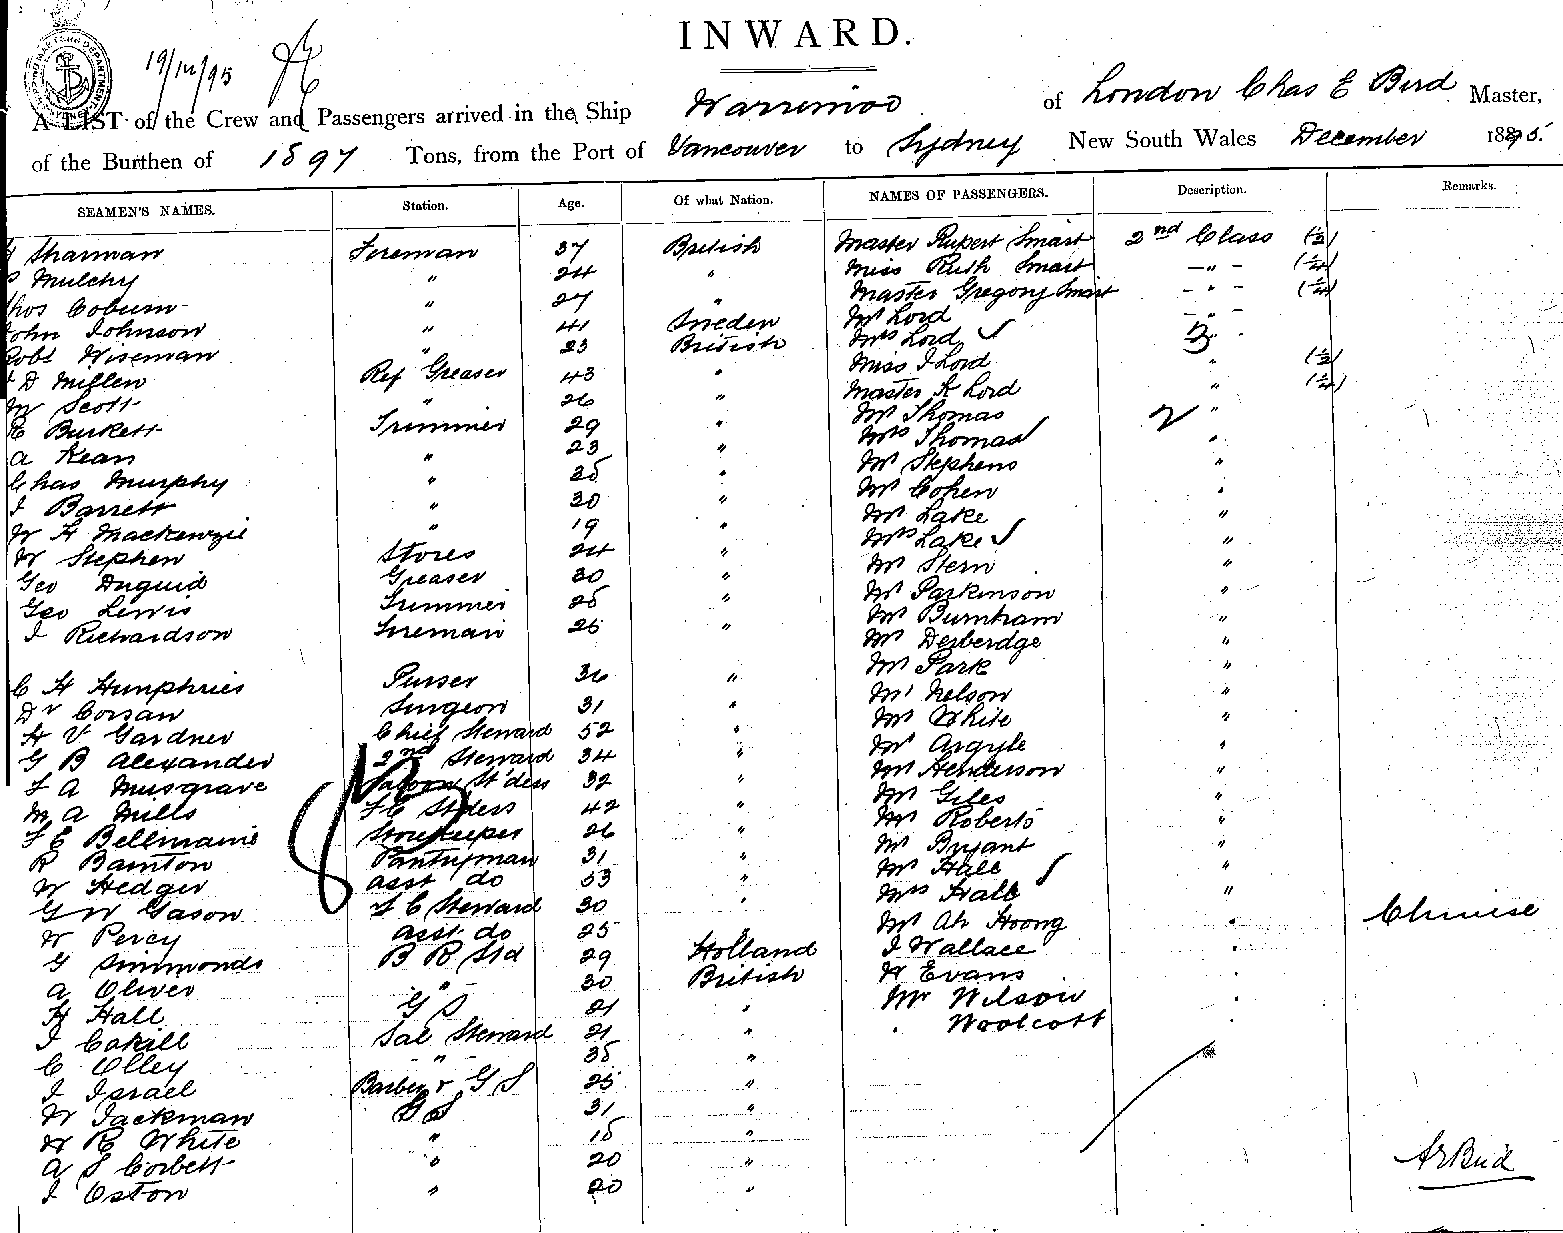 INWARD.
19/12/95
A LIST of the Crew and Passengers arrived in the Ship Warrimoo of London Chas E Bird Master,
of the Burthen of 1897 Tons, from the Port of Vancouver to Sydney New South Wales December 1895.
SEAMEN'S NAMES. Station. Age. Of what Nation. NAMES OF PASSENGERS. Description. Remarks.
Sharman Fireman 37 British Master Rupert Smart 2nd Class (½)
Mulchy " 24 " Miss Ruth Smart - " - (¼)
Thos Coburn " 27 " Master Gregory Smart - " - (¼)
John Johnson " 41 Sweden Mr Lord - " -
Robt Wiseman " 23 British Mrs Lord ✓ 3
D Millen Ref Greaser 43 " Miss I Lord " (½)
W Scott " 26 " Master K Lord " (¼)
R Burkett Trimmer 29 " Mr Thomas 2 "
A Kean " 23 " Mrs Thomas ✓ "
Chas Murphy " 35 " Mr Stephens "
J Barrett " 30 " Mr Cohen "
W H Mackenzie " 19 " Mr Lake "
W Stephen Stores 24 " Mrs Lake ✓ "
Geo Duguid Greaser 30 " Mr Stern "
Geo Lewis Trimmer 25 " Mr Parkinson "
J Richardson Fireman 25 " Mr Burnham "
Mr Desberdge "
C H Humphries Purser 36 " Mr Park "
Dr Corsan Surgeon 31 " Mr Nelson "
H V Gardner Chief Steward 52 " Mr White "
G B Alexander 2nd Steward 34 " Mr Argyle "
F A Musgrave Saloon St'dess 32 " Mr Henderson "
M A Mills F C St'dess 42 " Mr Giles "
F E Bellmaine Storekeeper 26 " Mr Roberts "
R Bainton Pantryman 31 " Mr Bryant "
W Hedger asst do 53 " Mr Hall ✓ "
G W Gason F C Steward 30 " Mrs Hall "
W Percy asst do 25 " Mr Ah Hoong " Chinese
G Simmonds B R Std 29 Holland J Wallace "
A Oliver " 30 British H Evans "
H Hall G S 21 " Mr Wilson "
J Cahill Sal Steward 21 " " Woolcott "
C Olley " 35 "
J Israel Barber & G S 25 "
W Jackman G S 31 "
W R White " 15 "
A S Corbett " 20 "
J Oston " 20 "